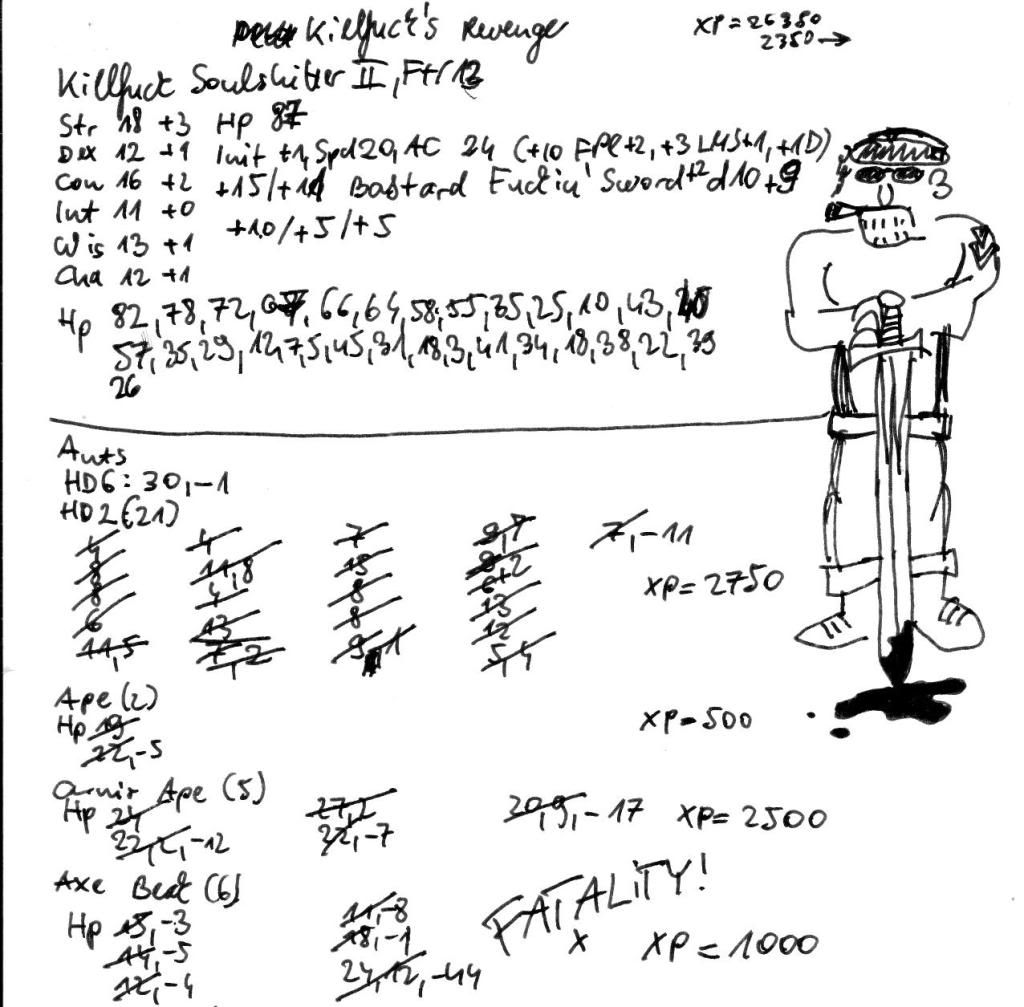 Killfuck's Revenge
XP=26350
2350→
Killfuck Soulshitter II, Ftr 13
Str 18 +3 Hp 87
Dex 12 +1 Init +1, Spd 20, AC 24 (+10 FPl+2, +3 LMS+1, +1D)
Con 16 +2 +15/+11 Bastard Fuckin' Sword+2 d10+9
Int 11 +0
+10/+5/+5
Wis 13 +1
Cha 12 +1
Hp 82, 78, 72, 66, 64, 58, 55, 35, 25, 10, 43,
57, 35, 29, 12, 7, 5, 45, 31, 18, 3, 41, 34, 18, 38, 22, 39
26
Ants
HD6: 30, -1
HD2 (21)
4 4 7 9,7 7,-11
8 11,8 15
8 4 8 6+2
6 13 8 13
12
11,5 7,2 9,1 5,4
XP=2750
Ape (2)
Hp 19
22,-5
XP=500
Carnir Ape (5)
Hp 24 27,2 20,9,-17 XP=2500
22,2,-12 22,-7
Axe Beak (6)
Hp 15,-3 11,-8
14,-5 18,-1
12,-4 24,12,-44
FATALITY!
x
XP=1000
3